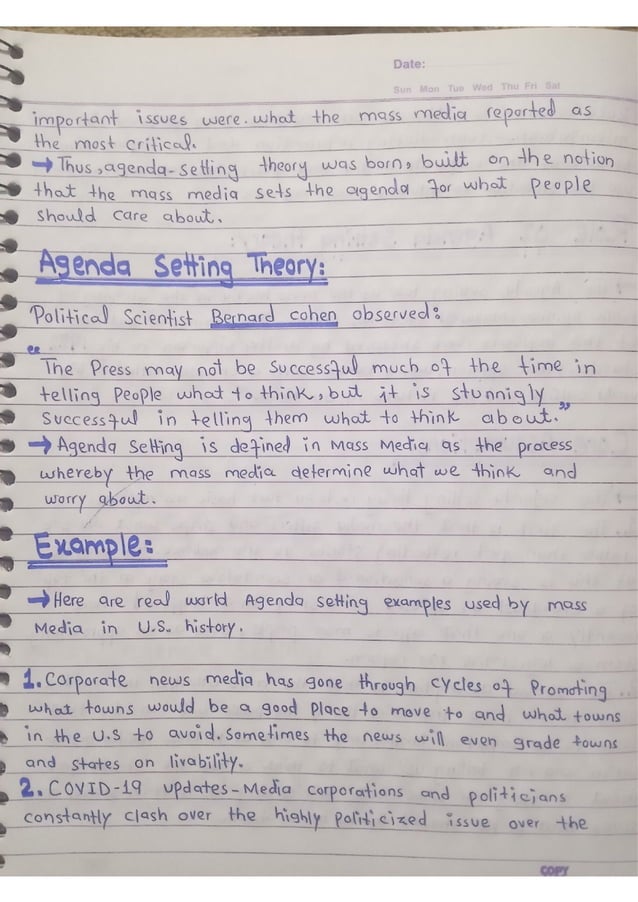 Date:
Sun Mon Tue Wed Thu Fri Sat
important issues were. what the mass media reported as
the most critical.
→ Thus, agenda-setting theory was born, built on the notion
that the mass media sets the agenda for what people
should care about.
Agenda Setting Theory:
Political Scientist Bernard cohen observed:
"The Press may not be successful much of the time in
telling People what to think, but it is stunnigly
Successful in telling them what to think about."
→ Agenda Setting is defined in Mass Media as the process
whereby the mass media determine what we think and
worry about.
Example:
→ Here are real world Agenda setting examples used by mass
Media in U.S. history.
1. Corporate news media has gone through cycles of Promoting
what towns would be a good Place to move to and what towns
in the U.S to avoid. Sometimes the news will even grade towns
and states on livability.
2. COVID-19 updates - Media corporations and politicians
constantly clash over the highly politicized issue over the
COPY